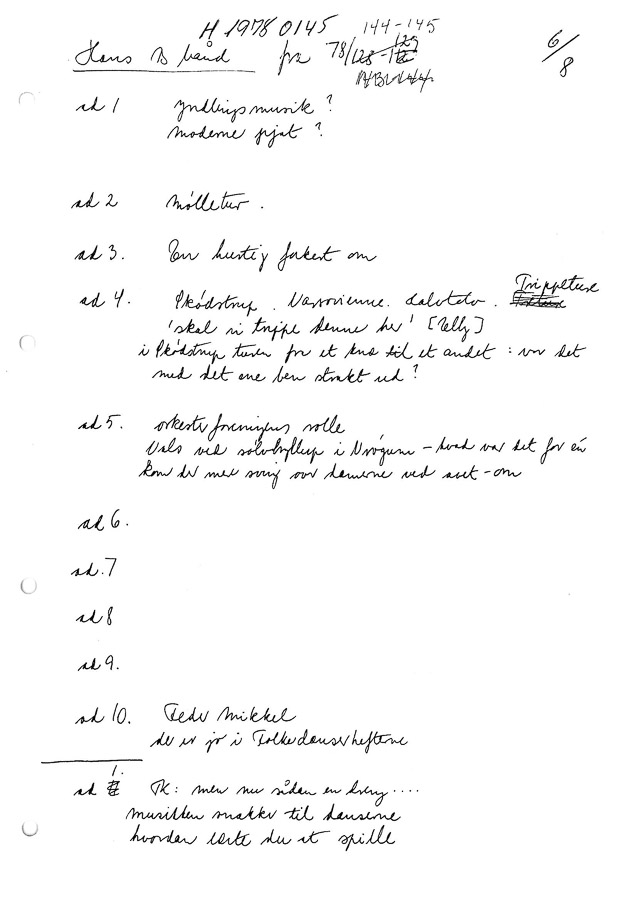 H 1978 0145 144-145
Hans B bånd fra 78/ 129 6/8
ad 1 Yndlingsmusik?
Moderne pjat?
ad 2 Mølletur.
ad 3. En hurtig forkert om
ad 4. Pkødstrup. Varsovienne. Trippeture
'skal vi trippe denne her' [Telly]
i Pkødstrup turen fra et knæ til et andet : var det
med det ene ben strakt ud?
ad 5. orkesterforeningens rolle
Vals ved sølvbryllup i - hvad var det for én
kom der mer sving over damerne ved avet-om
ad 6.
ad.7
ad 8
ad 9.
ad 10. Feder Mikkel
de er jo i Folkedanserhefterne
ad 1. TK: men nu sådan en dreng....
musikken snakker til danserne
hvordan lærte du at spille